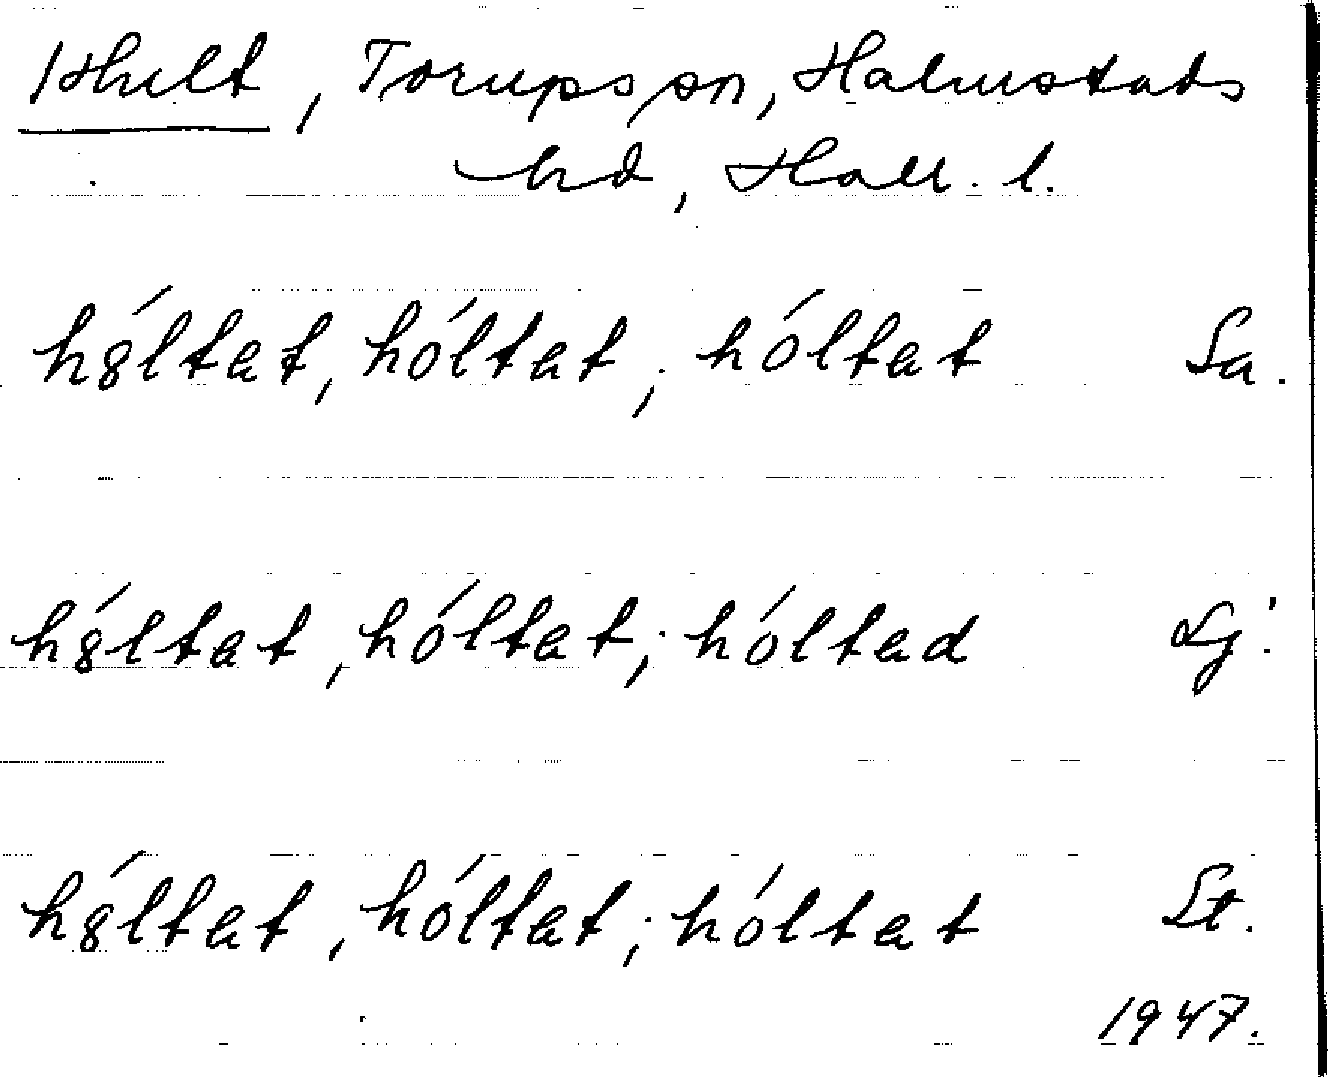 1 Hult, Torups sn, Halmstads
hd, Hall. l.
hȣ́ltat, hóltat; hóltat Sa.
hȣ́ltat, hóltat; hóltad Lj.
hȣ́ltat, hóltat; hóltat St.
1947.